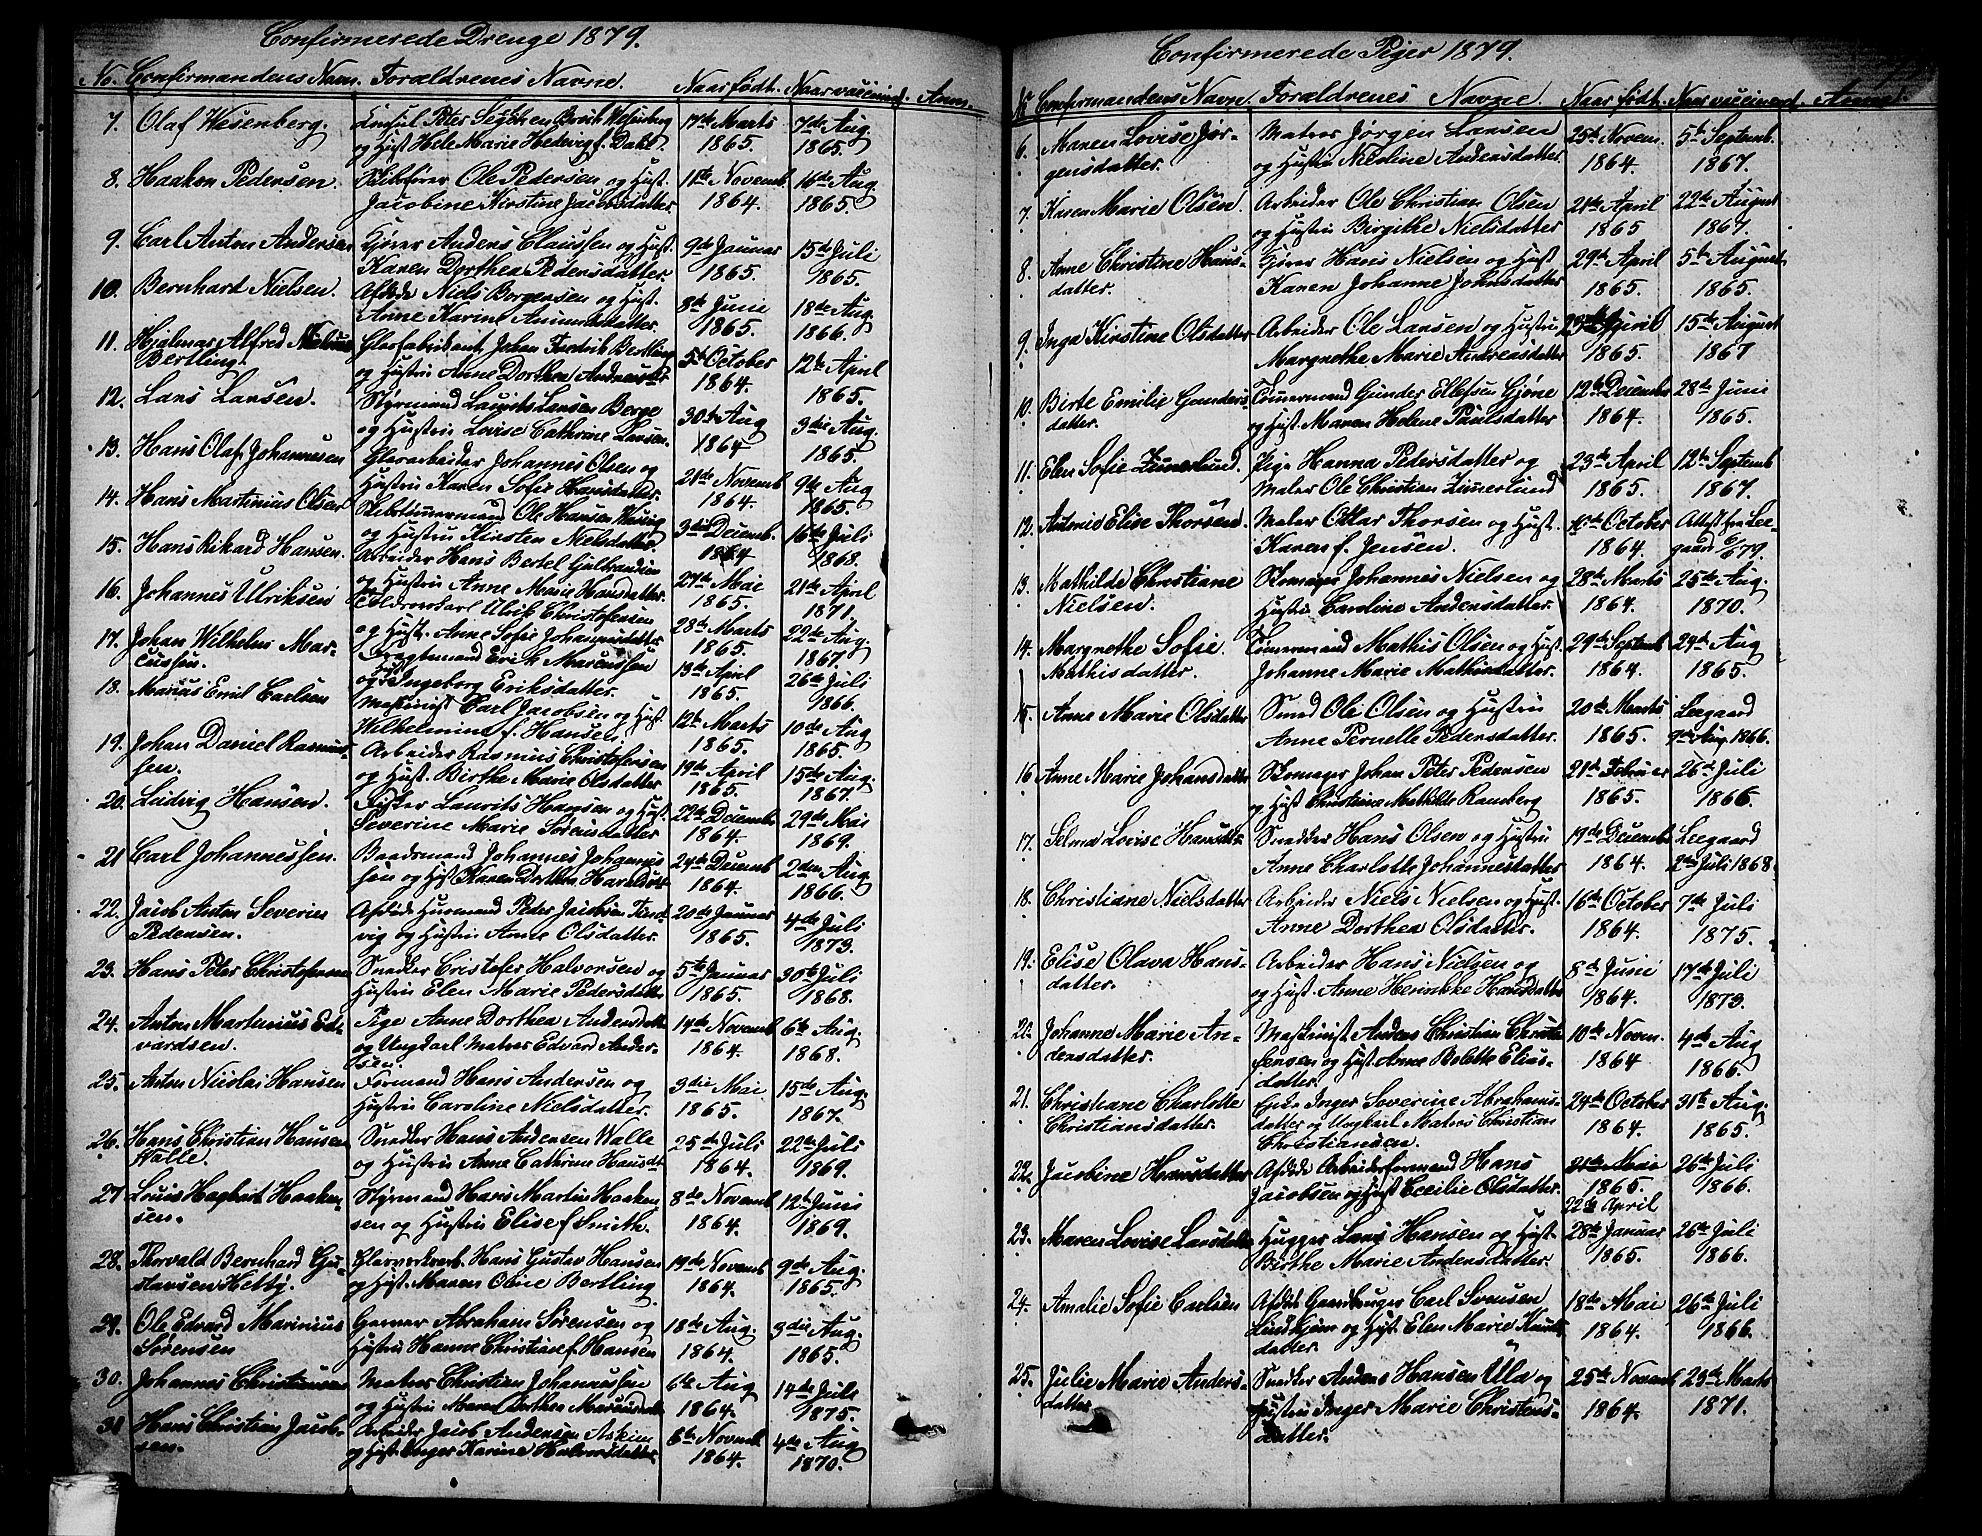 Confirmerede Drenge 1879.
No. Confirmandens Navn. Forældrenes Navne. Naar født. Naar vaccinered. Anm.
7. Olaf Wesenberg. Peter Wesenberg 17de Marts 7de Aug.
og Hust Marie f. Dahl. 1865. 1865.
8. Haakon Pedersen. Skibfører Ole Pedersen og Hust. 11te Novemb. 16de Aug.
Jacobine Kirstine Jacobsdatter. 1864. 1865.
9. Carl Anton Andersen Kjører Anders Claussen og Hust. 9de Januar 15de Juli
Karen Dorthea Pedersdatter. 1865. 1865.
10. Bernhard Nielsen. Afdøde Niels Borgersen og Hust. 8de Juni 18de Aug.
Anne Karine 1865. 1866.
11. Hjalmar Alfred Glasfabrikant Johan Fredrik Bertling 5te October 12te April
Bertling. og Hustru Anne Dorthea 1864. 1865.
12. Lars Larsen. Styrmand Laurits Larsen Berge 30te Aug 3die Aug.
og Hustru Lovise Cathrine Larsen. 1864 1865.
13. Hans Olaf Johannesen Glasarbeider Johannes Olsen og 21de Novemb 9de Aug
Hustru Karen Sofie Hansdatter. 1864. 1865.
14. Hans Martinius Olsen Skibtømermand Ole Hansen 3die Decemb. 16de Juli
og Hustru Kirsten Nielsdatter. 1864 1868.
15. Hans Rikard Hansen. Arbeider Hans Bertel 27de Mai 21de April
og Hustru Anne Marie Hansdatter. 1865. 1871.
16. Johannes Ulriksen Ulrik Christofersen 28de Marts 22de Aug.
og Hust. Anne Sofie Johannesdatter 1865. 1867.
17. Johan Wilhelm Mar- Fragtemand Erik Marcussen 13de April 26de Juli
cussen. og Ingeborg Eriksdatter. 1865. 1866.
18. Marius Emil Carlsen Maskinist Carl Jacobsen og Hust 12te Marts 10de Aug
Wilhelmine f. Hansen. 1865. 1865.
19. Johan Daniel Rasmus- Arbeider Rasmus Christofersen 19de April 15de Aug.
sen. og Hust. Birthe Marie Olsdatter 1865. 1867.
20. Ludvig Hansen. Fisker Laurits Hansen og Hust 22de Decemb 29de Mai
Severine Marie Sørensdatter 1864. 1869.
21 Carl Johannessen. Baadsmand Johannes Johannes- 24de Decemb 2den Aug.
sen og Hust Karen Dorthea 1864. 1866.
22. Jacob Anton Severin Afdøde Husmand Peder Jacobsen 20de Januar 4de Juli
Pedersen. vig og Hustru Anne Olsdatter. 1865. 1873.
23. Hans Peter Christofersen Snedker Cristofer Halvorsen og 5te Januar 30te Juli
Hustru Elen Marie Pedersdatter 1865. 1868.
24. Anton Martinius Ed- Pige Anne Dorthea Andersdatter 14de Novemb 6te Aug.
vardsen. og Ungkarl Matros Edvard Ander- 1864. 1868.
sen.
25. Anton Nicolai Hansen Formand Hans Andersen og 3die Mai 15de Aug.
Hustru Caroline Nielsdatter. 1865. 1867.
26. Hans Christian Hansen Snedker Hans Andersen Walle 25de Juli 22de Juli
Walle. og Hustru Anne Cathrine Hansdt 1864. 1869.
27 Louis Hagbart Haaken- Styrmand Hans Martin Haaken 8de Novemb 12te Juni
sen. sen og Hustru Elise f Smith. 1864. 1869.
28. Thorvald Bernhard Gu- Hans Gustav Hansen 19de Novemb 9de Aug.
stavsen og Hust. Maren Oline Bertling 1864. 1865.
29. Ole Edvard Marinius Garver Abraham Sørensen og 18de Aug. 3die Aug.
Sørensen Hustru Hanne Christine f Hansen 1864. 1865.
30. Johannes Christiansen Matros Christian Johannessen 6te Aug 14de Juli
og Hustru Maren Dorthea 1864. 1875.
31 Hans Christian Jacob- Arbeider Jacob Andersen Askim 6te Novemb 4de Aug
sen. og Hust. Inger Karine Halvorsdatter. 1864. 1870.
Confirmerede Piger 1879.
No Confirmandens Navn. Forældrenes Navne. Naar født. Naar vaccinered. Anm.
6. Maren Lovise Jør- Matros Jørgen Larsen 25de Novem. 5te Septemb.
gensdatter. og Hustru Nicoline Andersdatter. 1864. 1867.
7. Karen Marie Olsen. Arbeider Ole Christian Olsen 21de April 22de August
og Hustru Birgithe Nielsdatter 1865 1867.
8. Anne Christine Hans- Kjører Hans Nielsen og Hust 29de April 5te August
datter. Karen Johanne Johnsdatter 1865. 1865.
9. Inga Kirstine Olsdatter Arbeider Ole Larsen og Hustru April 15de August
Margrethe Marie Andreasdatter 1865. 1867
10. Birte Emilie Gunders- Tømmermand Gunder Ellefsen Gjøne 12te Decemb 28de Juni
datter. og Hust. Maren Helene Paulsdatter 1864. 1865.
11. Elen Sofie Zimerlund. Pige Hanna Pedersdatter og 23de April 12te Septemb
Maler Ole Christian Zimerlund 1865. 1867.
12. Antonie Elise Thorsen. Maler Ottar Thorsen og Hust. 10de October Attest fra Lee-
Karen f. Jensen. 1864. gaard 6/6 79.
13. Mathilde Christiane Skomager Johannes Nielsen og 28de Marts 25de Aug.
Nielsen. Hustru Caroline Andersdatter. 1864. 1870.
14. Margrethe Sofie Tømmermand Mathis Olsen og Hust 29de Septemb 24de Aug
Mathisdatter. Johanne Marie Mathisdatter. 1864. 1865.
15. Anne Marie Olsdatter Smed Ole Olsen og Hustru 20de Marts Leegaard
Anne Pernelle Pedersdatter. 1865. 9de Aug. 1866.
16 Anne Marie Johansdatter Skomager Johan Peter Pedersen 21de Februar 26de Juli
og Hust Christiane Mathilde Ramberg 1865. 1866.
17. Selma Lovise Hansdtr. Snedker Hans Olsen og Hustru 19de Decemb Leegaard
Anne Charlotte Johannesdatter 1864. 2den Juli 1868
18. Christiane Nielsdatter Arbeider Niels Nielsen og Hust. 16de October 7de Juli
Anne Dorthea Olsdatter. 1864. 1875.
19. Elise Olava Hans- Arbeider Hans Nielsen og 8de Juni 17de Juli
datter. og Hust. Anne Henrikke Hansdatter 1864. 1873.
20. Johanne Marie An- Maskinist Anders Christian Christen- 10de Novem. 4de Aug
dersdatter. sensen og Hust. Anne Bolette Elias- 1864 1866.
datter.
21. Christiane Charlotte Inger Severine Abrahams- 24de October 31te Aug.
Christiansdatter. datter og Ungkarl Matros Christian 1864. 1865.
Christiansen.
22. Jacobine Hansdatter Afdøde Arbeiderformand Hans 21de Mai 26de Juli
Jacobsen og Hust Cecilie Olsdatter. 1865. 1866.
22de April
23. Maren Lovise Larsdatter Hugger Lars Hansen og Hust. 28de Januar 26de Juli
Birthe Marie Andersdatter. 1865. 1866.
24. Amalie Sofie Carlsen Afdøde Gaardbruger Carl Svensen 18de Mai 26de Juli
Lindhjem og Hust. Elen Marie Knuds- 1864. 1866.
datter.
25. Julie Marie Anders- Snedker Anders Hansen Ula og 25de Novemb 23de Marts
datter. Hustru Inger Marie Christens- 1864. 1871.
datter.